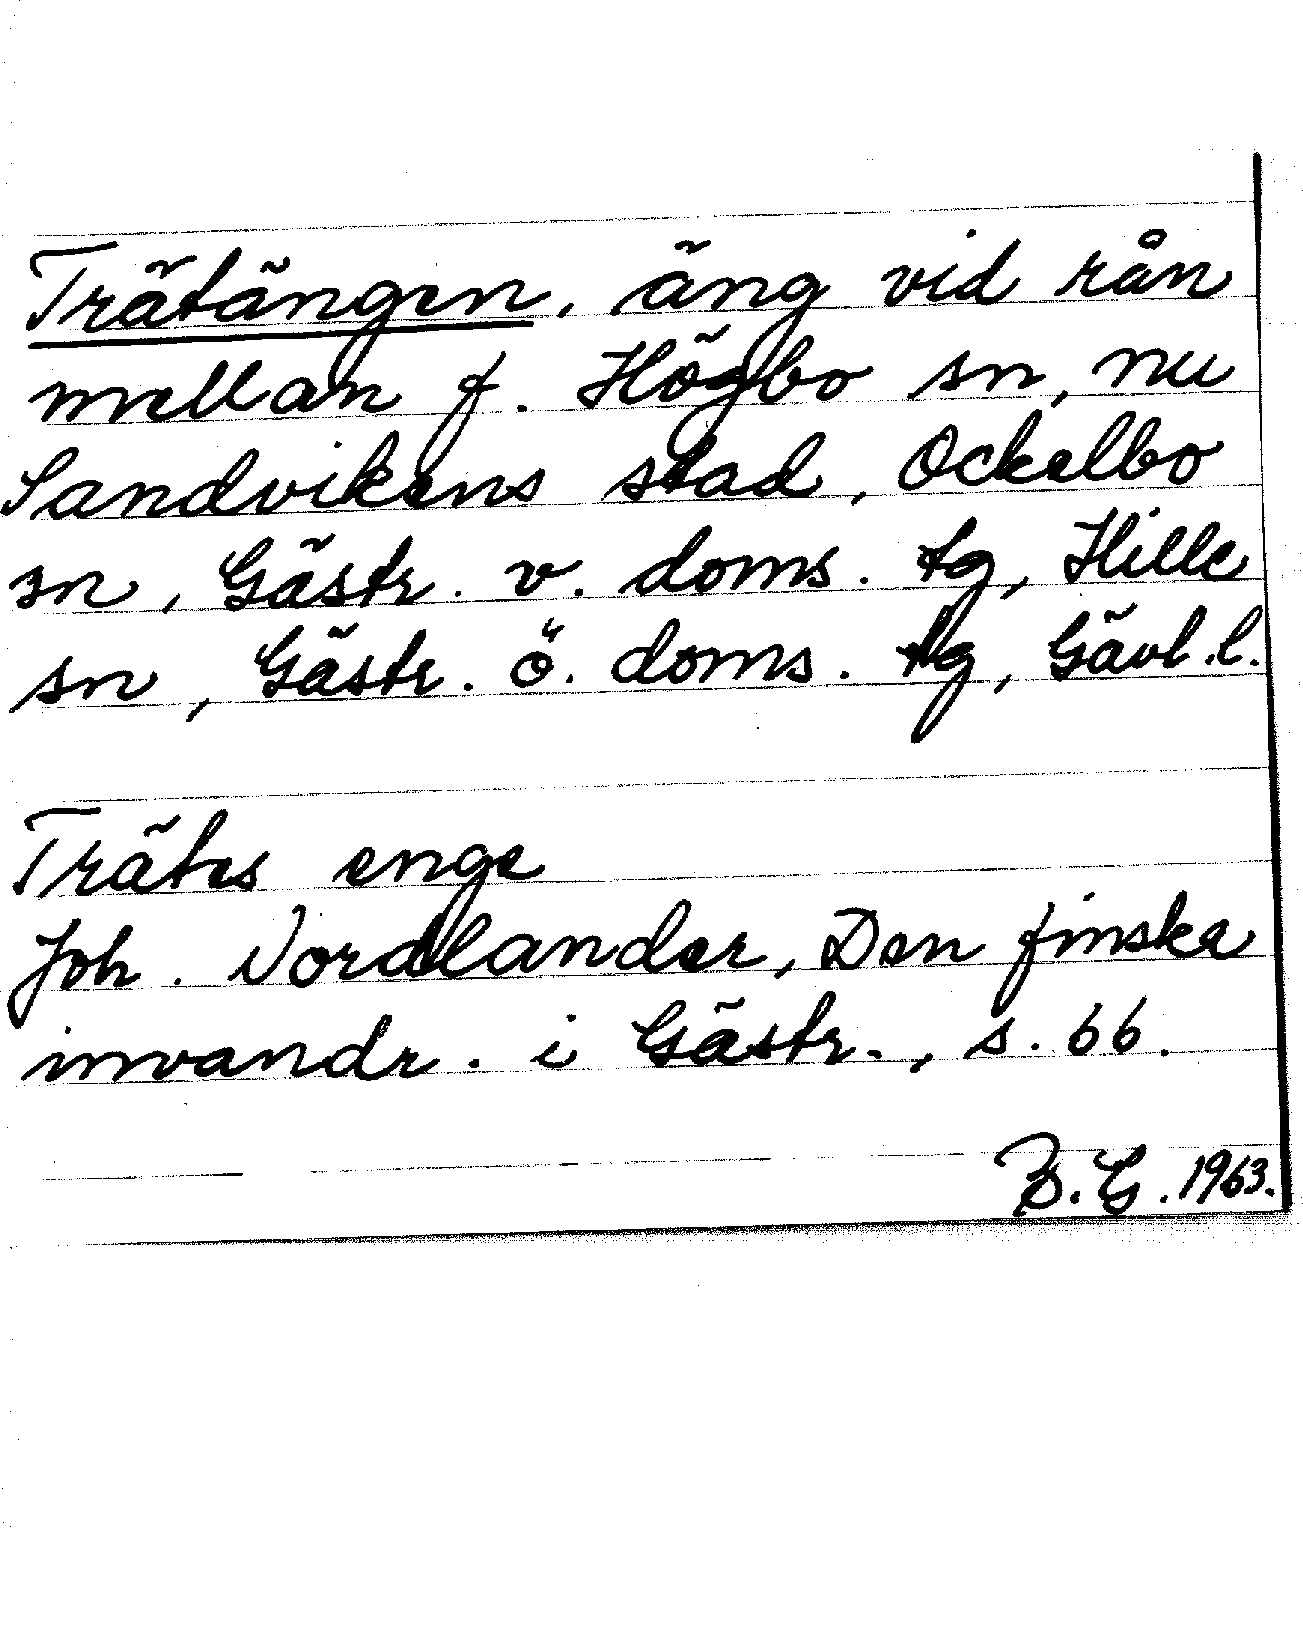 Trätängen, äng vid rån
mellan f. Högbo sn, nu
Sandvikens stad, Ockelbo
sn, Gästr. v. doms. tg, Hille
sn, Gästr. ö. doms. tg, Gävl.l.
Trätes enge
Joh. Nordlander, Den finska
invandr. i Gästr., s. 66.
B.G. 1963.